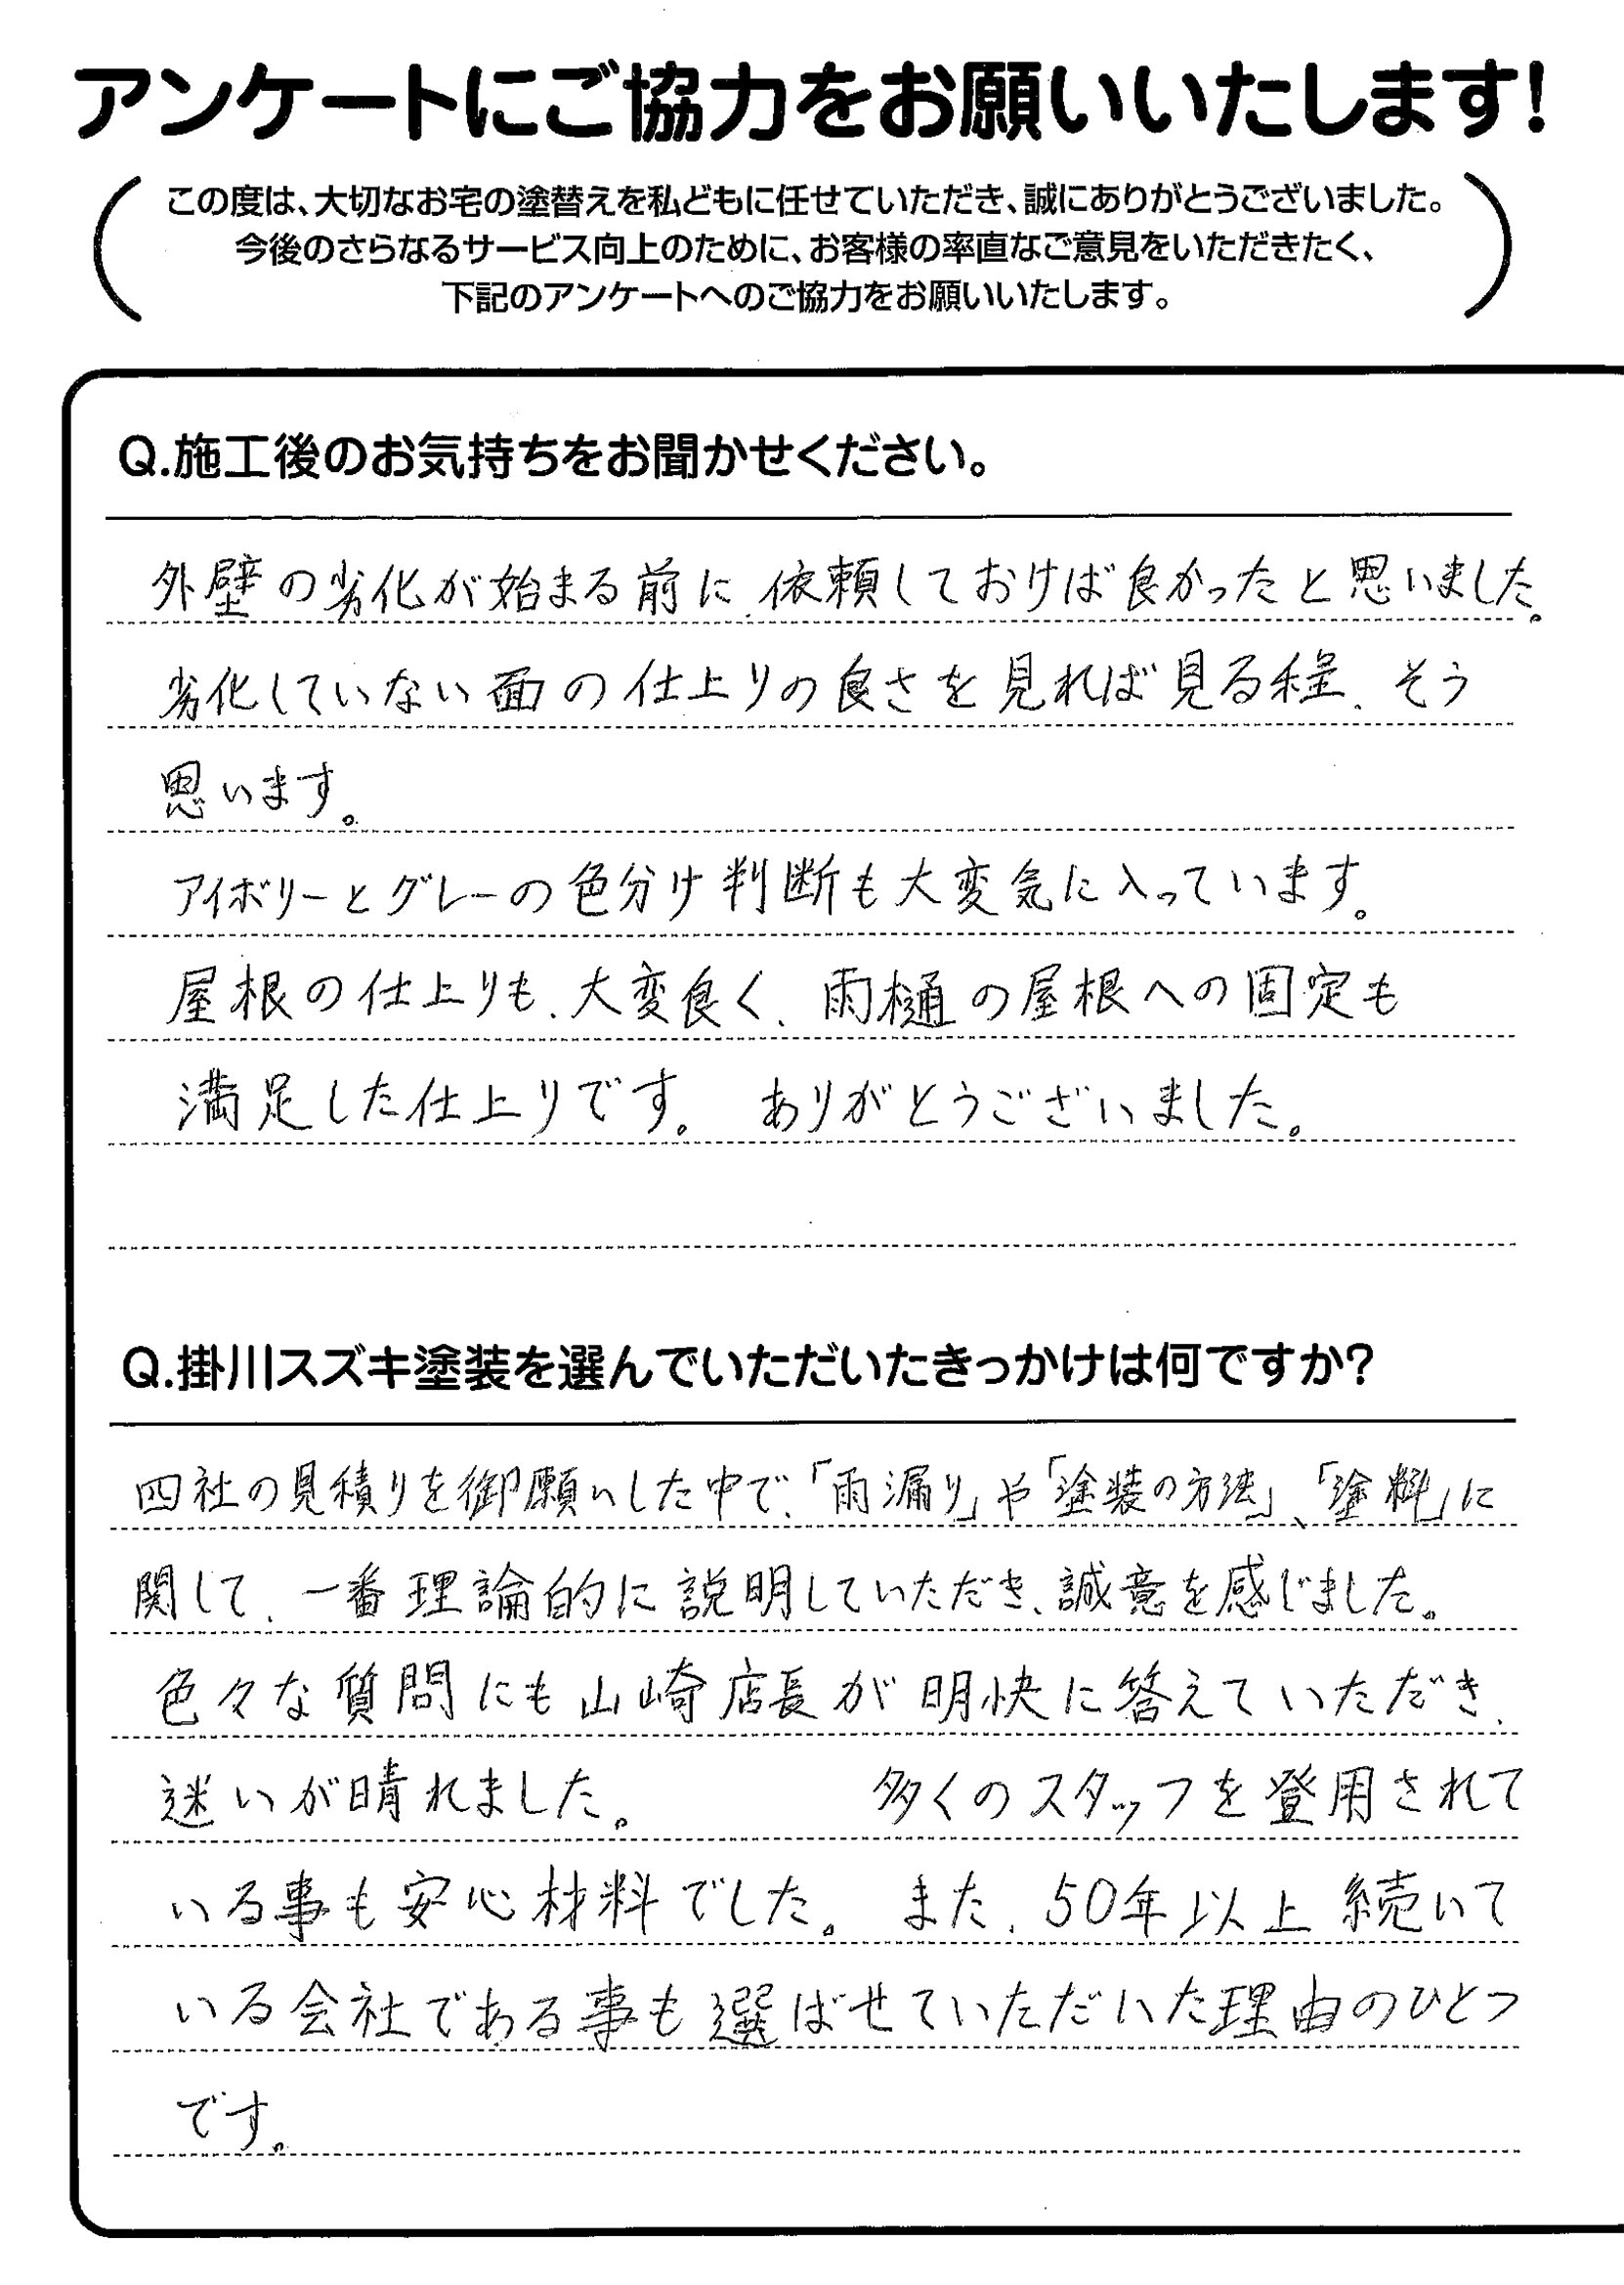 アンケートにご協力をお願いいたします!
この度は、大切なお宅の塗替えを私どもに任せていただき、誠にありがとうございました。
今後のさらなるサービス向上のために、お客様の率直なご意見をいただきたく、
下記のアンケートへのご協力をお願いいたします。
Q.施工後のお気持ちをお聞かせください。
外壁の劣化が始まる前に、依頼しておけば良かったと思いました。
劣化していない面の仕上りの良さを見れば見る程、そう
思います。
アイボリーとグレーの色分け判断も大変気に入っています。
屋根の仕上りも、大変良く、雨樋の屋根への固定も
満足した仕上りです。 ありがとうございました。
Q.掛川スズキ塗装を選んでいただいたきっかけは何ですか?
四社の見積りを御願いした中で、「雨漏り」や「塗装の方法」、「塗料」に
関して、一番理論的に説明していただき、誠意を感じました。
色々な質問にも山崎店長が明快に答えていただき、
迷いが晴れました。 多くのスタッフを登用されて
いる事も安心材料でした。 また、50年以上続いて
いる会社である事も選ばせていただいた理由のひとつ
です。